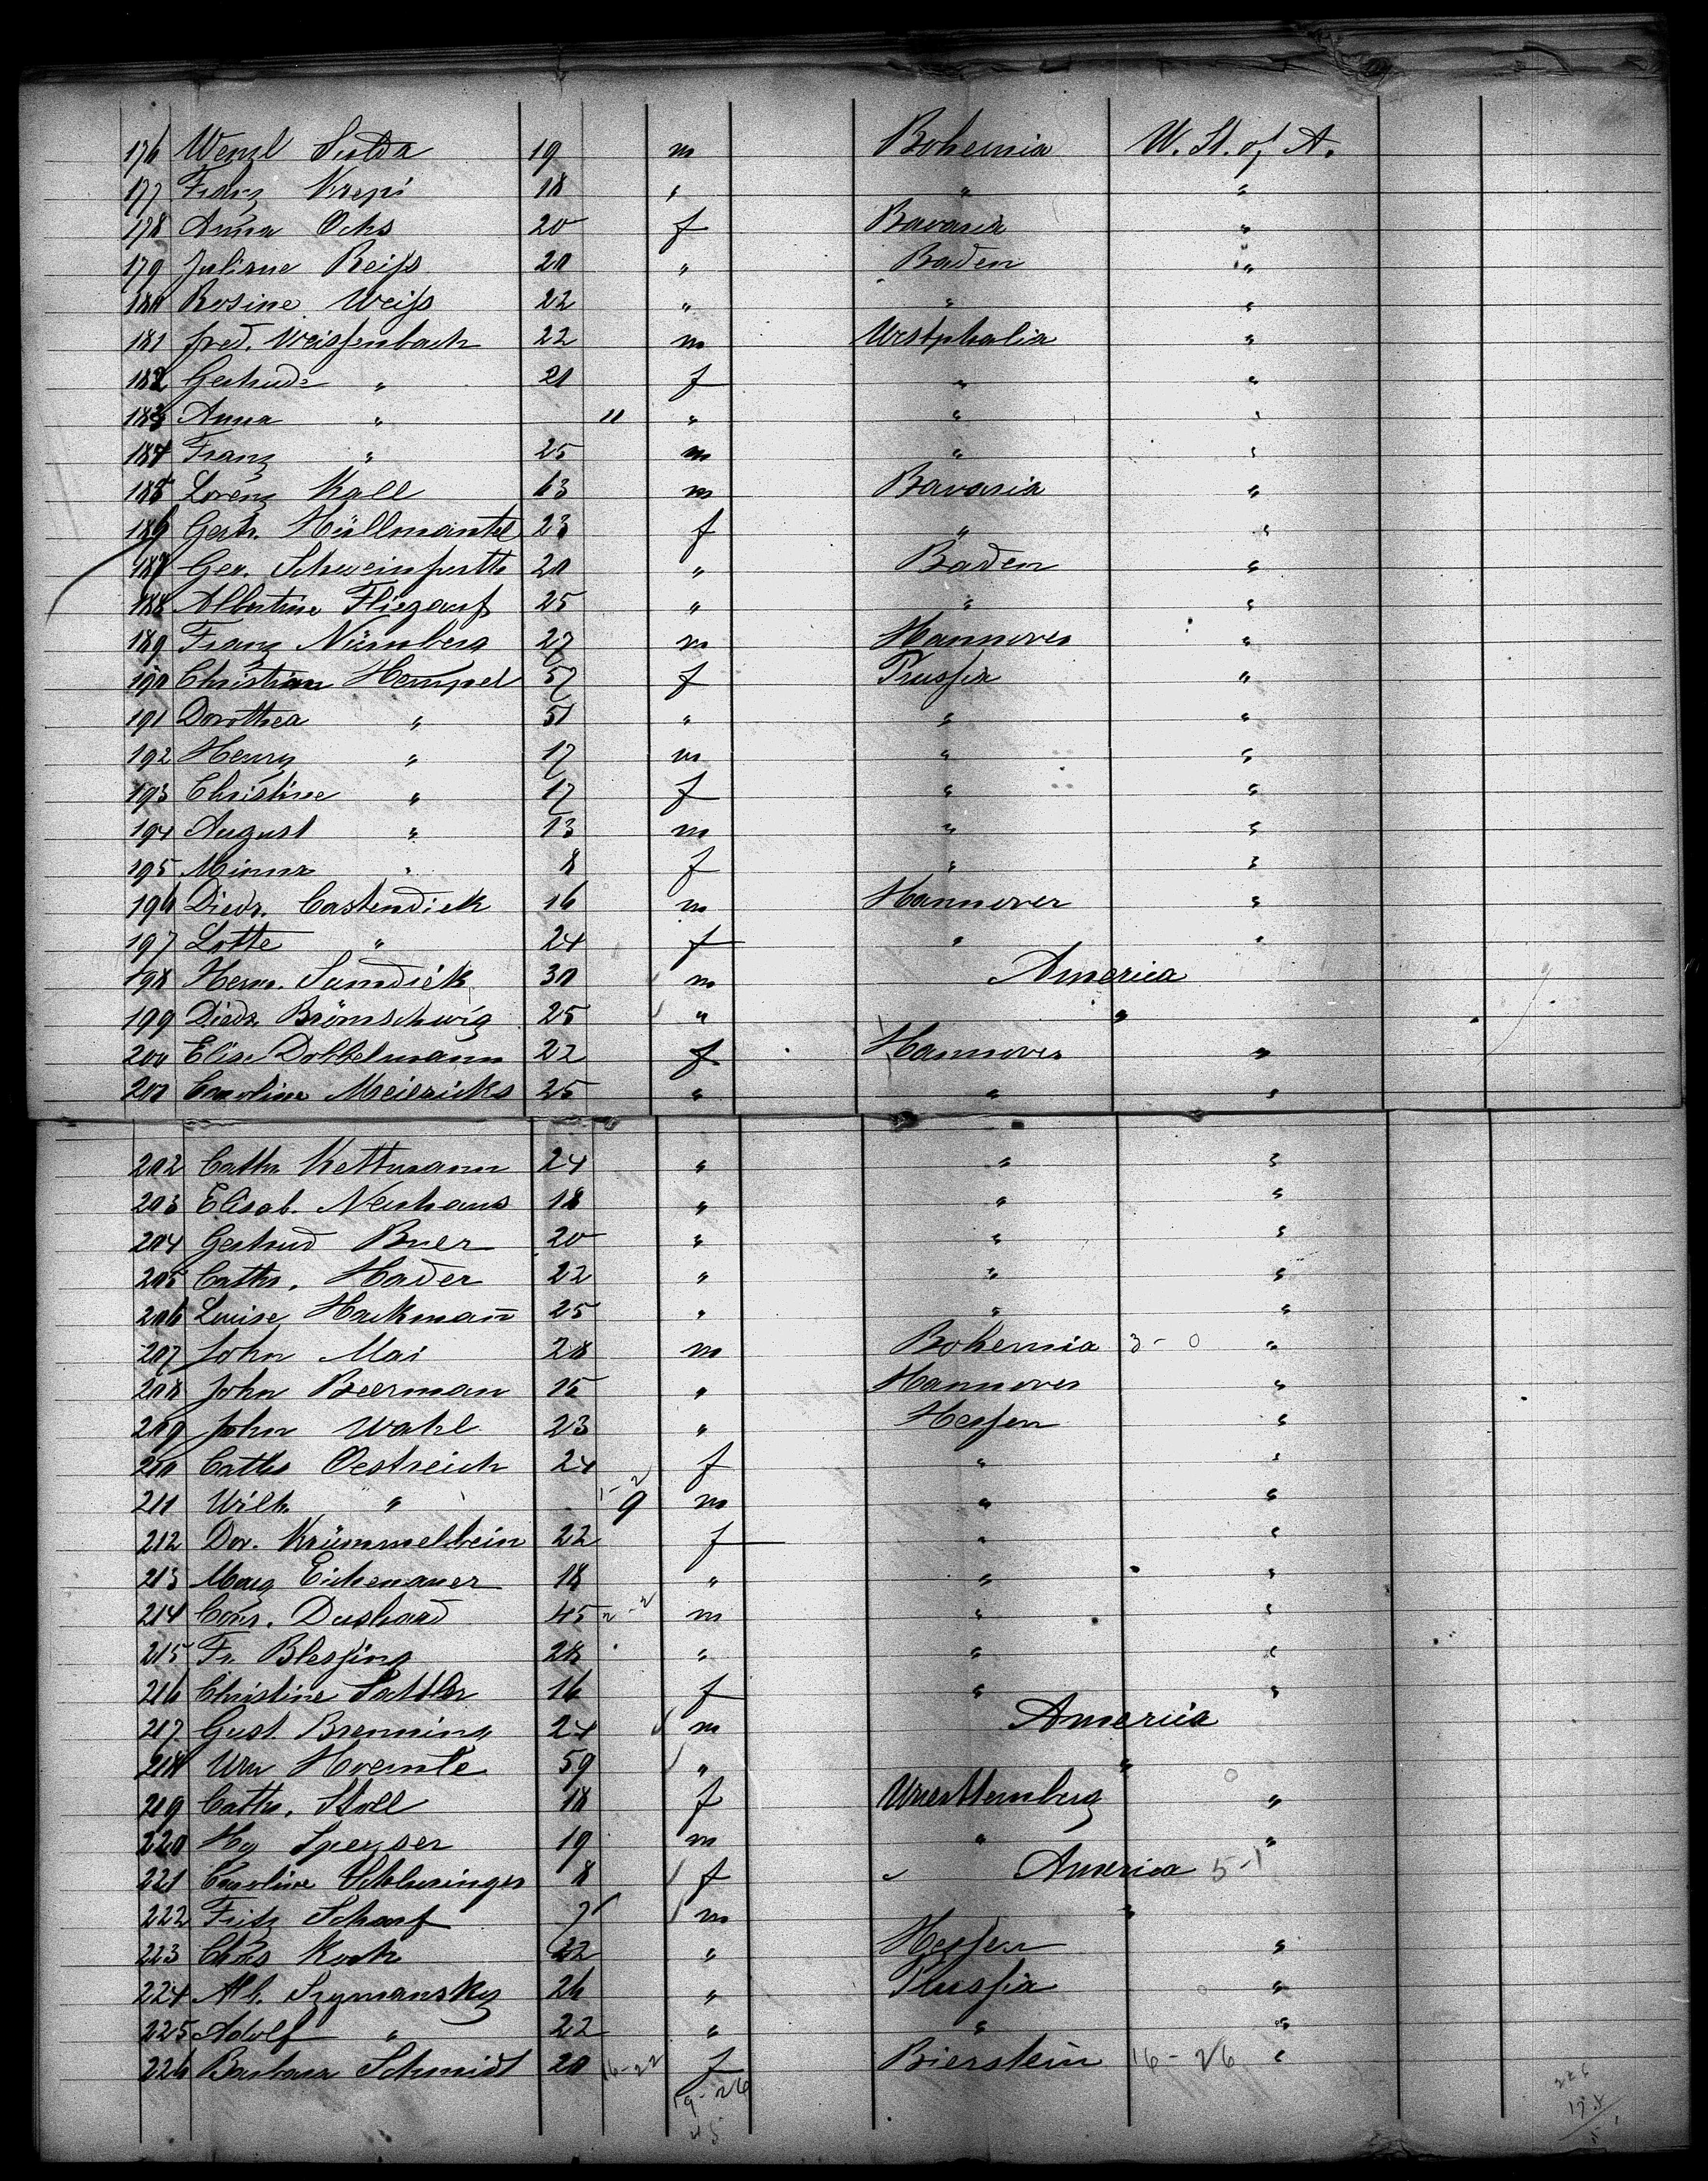 176 Wenzl Sulda 19 m Bohemia U. St. of A.
177 Franz Krepi 18 " " "
178 Anna Ochs 20 f Bavaria "
179 Juliane Reiſs 20 " Baden "
180 Rosine Weiſs 22 " " "
181 Fred. Weiſsenbach 22 m Westphalia "
182 Gertrude " 20 f " "
183 Anna " 11 " " "
184 Franz " 25 m " "
185 Lorenz Kall 63 m Bavaria "
186 Gertr. Hüllmantel 23 f " "
187 Geo. Schweinfurth 20 " Baden "
188 Albertine Fliegauf 25 " " "
189 Franz Nürnberg 27 m Hannover "
190 Christian Hempel 57 f Pruſsia "
191 Dorothea " 51 " " "
192 Henry " 17 m " "
193 Christine " 17 f " "
194 August " 13 m " "
195 Minna " 8 f " "
196 Diedr. Castendiek 16 m Hannover "
197 Lotte " 24 f " "
198 Herm. Sundiek 30 m America
199 Diedr. Brömschwig 25 " "
200 Elise Dobbelmann 22 f Hannover "
201 Caroline Meiericks 25 " " "
202 Cathr Kettmann 24 " " "
203 Elisab. Neuhaus 18 " " "
204 Gertrud Buer 20 " " "
205 Cathr. Hader 22 " " "
206 Luise Hackmann̄ 25 " " "
207 John Mai 28 m Bohemia 3 - 0 "
208 John Beerman 15 " Hannover "
209 John Wahl 23 " Heſsen "
210 Cathr Oestreich 24 f " "
211 Wilh. " 1-2 9 m " "
212 Dor. Krümmelbein 22 f " "
213 Marg Eichenauer 18 " " "
214 Conr. Dushard 45 2-2 m " "
215 Fr. Bleſsing 28 " " "
216 Christine Sattler 16 f " "
217 Gust. Brenning 24 m America
218 Wm 59 " "
219 Cathr. Stoll 18 f Wuerttemberg "
220 Hy Speyser 19 m " "
221 Caroline Schlusinger 8 f America 5-1
222 Fritz Scharf 7 m "
223 Chas Koch 22 " Heſsen "
224 Alb. Szymansky 26 " Pruſsia "
225 Adolf " 22 " " "
226 Barbara Schmidt 20 16-22 f Bierstein 16-26 "
19-26
45